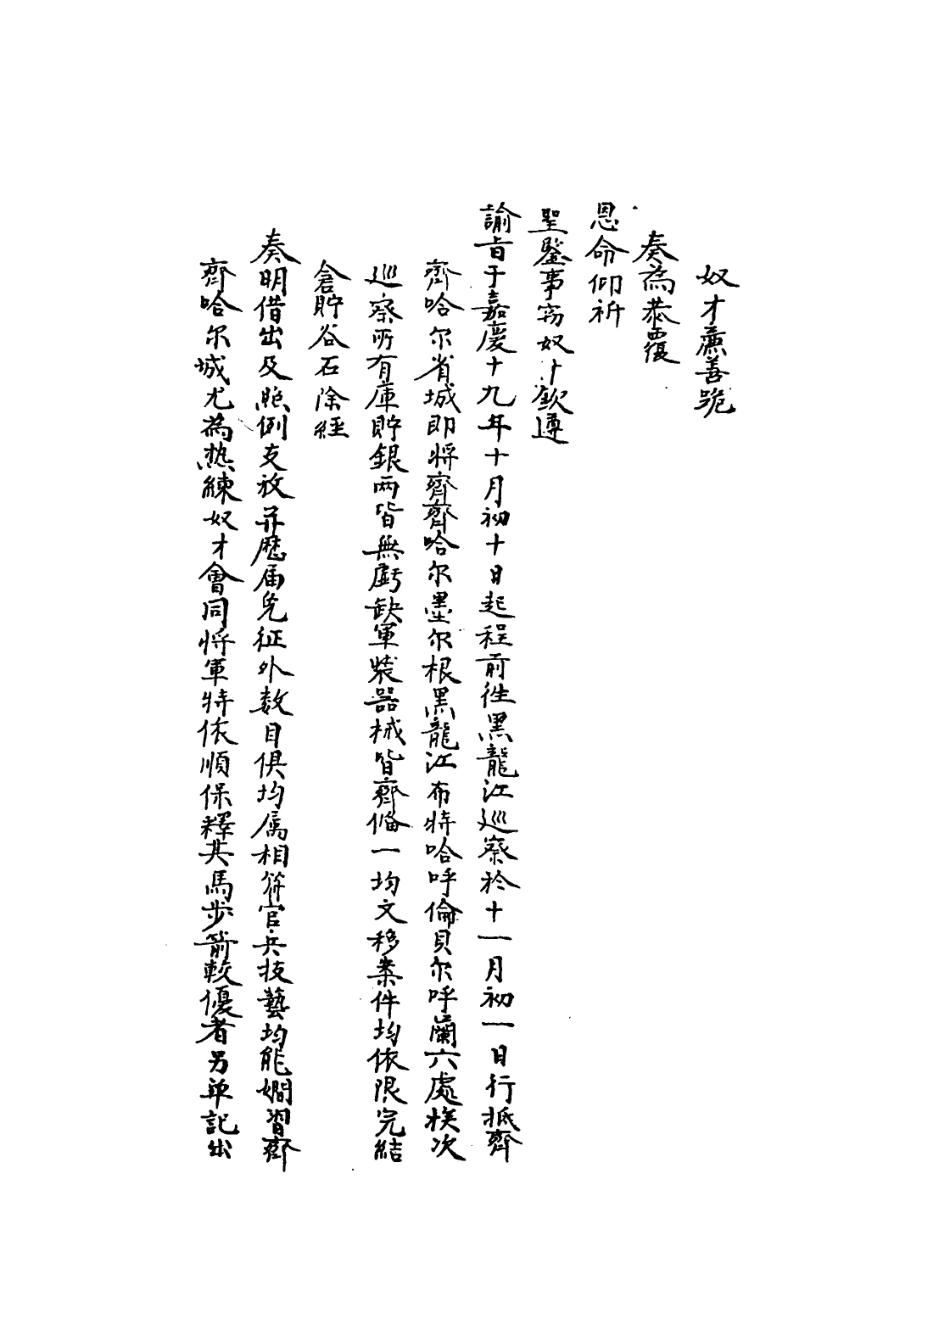 奴才廉善跪
奏為恭覆
恩命仰祈
聖鑒事窃奴才欽遵
諭旨于嘉慶十九年十月初十日起程前徃黑龍江巡察於十一月初一日行抵齊
齊哈尔省城即将齊齊哈尔墨尔根黑龍江布特哈呼倫貝尔呼蘭六處挨次
巡察所有庫貯銀両皆無虧缺軍裝器械皆齊俻一均文移案件均依限完結
倉貯谷石除經
奏明借出及照例支放并歷届免征外数目俱均属相符官兵技藝均能嫺習齊
齊哈尔城尤為熟練奴才會同将軍特依順保釋其馬步箭較優者另单記出